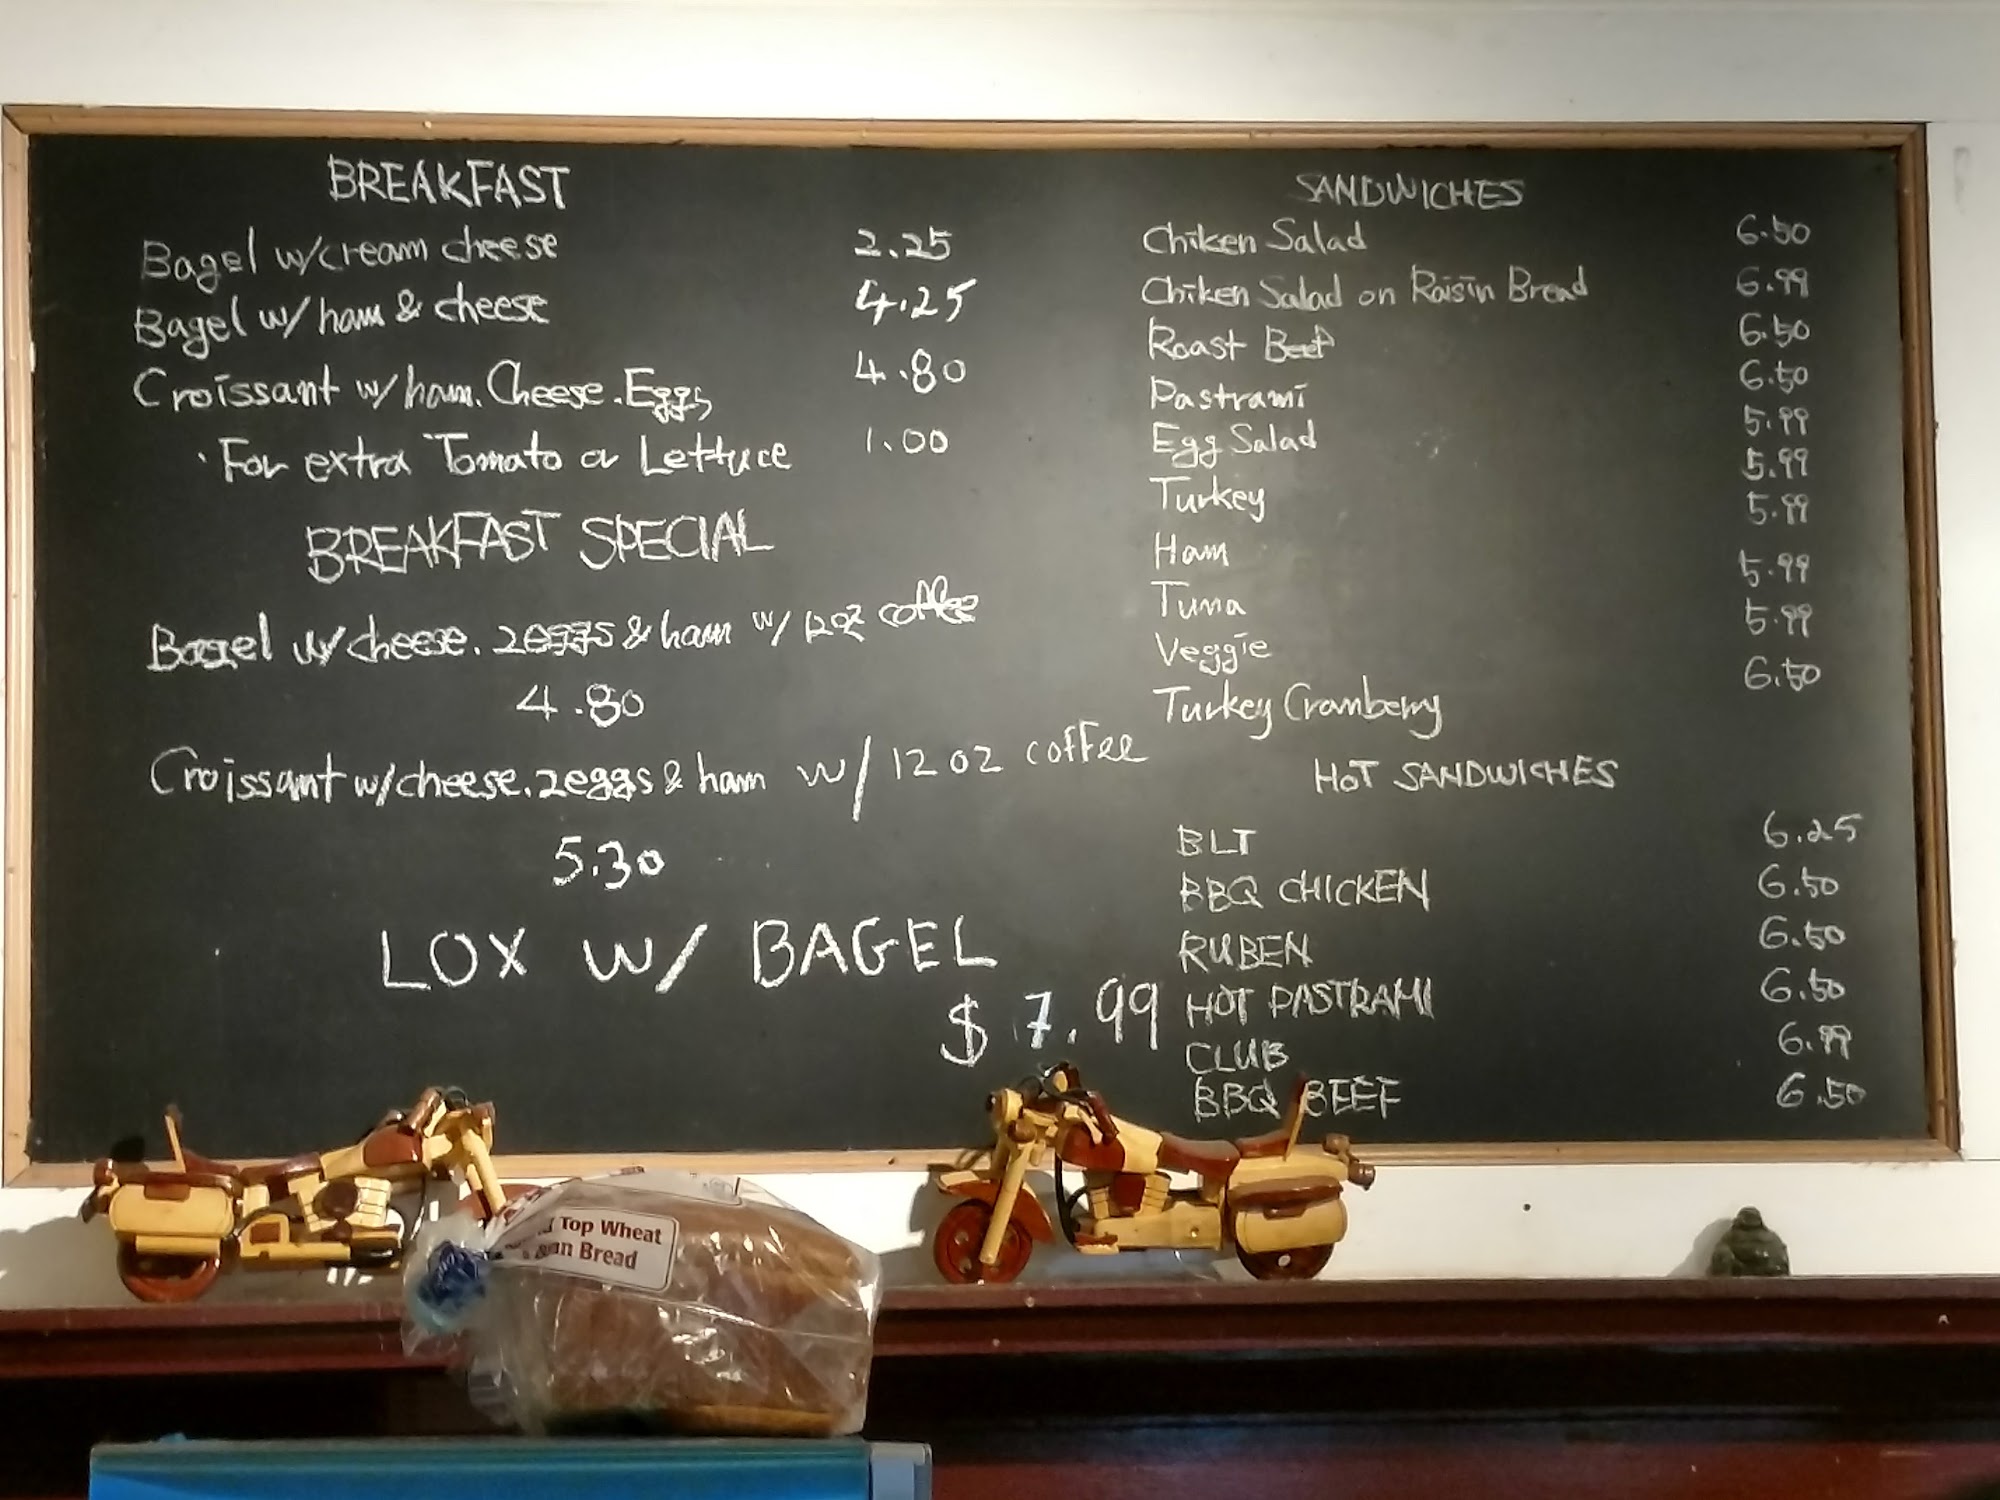 BREAKFAST
Bagel w/cream cheese 2.25
Bagel w/ ham & cheese 4.25
Croissant w/ham. Cheese. Eggs 4.80
· For extra Tomato or Lettuce 1.00
BREAKFAST SPECIAL
Bagel w/cheese. 2eggs & ham w/ 12oz coffee
4.80
Croissant w/cheese. 2eggs & ham w/ 12 oz coffee
5.30
LOX W/ BAGEL
$ 7.99
SANDWICHES
Chiken Salad 6.50
Chiken Salad on Raisin Bread 6.99
Roast Beef 6.50
Pastrami 6.50
Egg Salad 5.99
Turkey 5.99
Ham 5.99
Tuna 5.99
Veggie 5.99
Turkey Cranberry 6.50
HOT SANDWICHES
BLT 6.25
BBQ CHICKEN 6.50
RUBEN 6.50
HOT PASTRAMI 6.50
CLUB 6.99
BBQ BEEF 6.50
Top Wheat
Bread